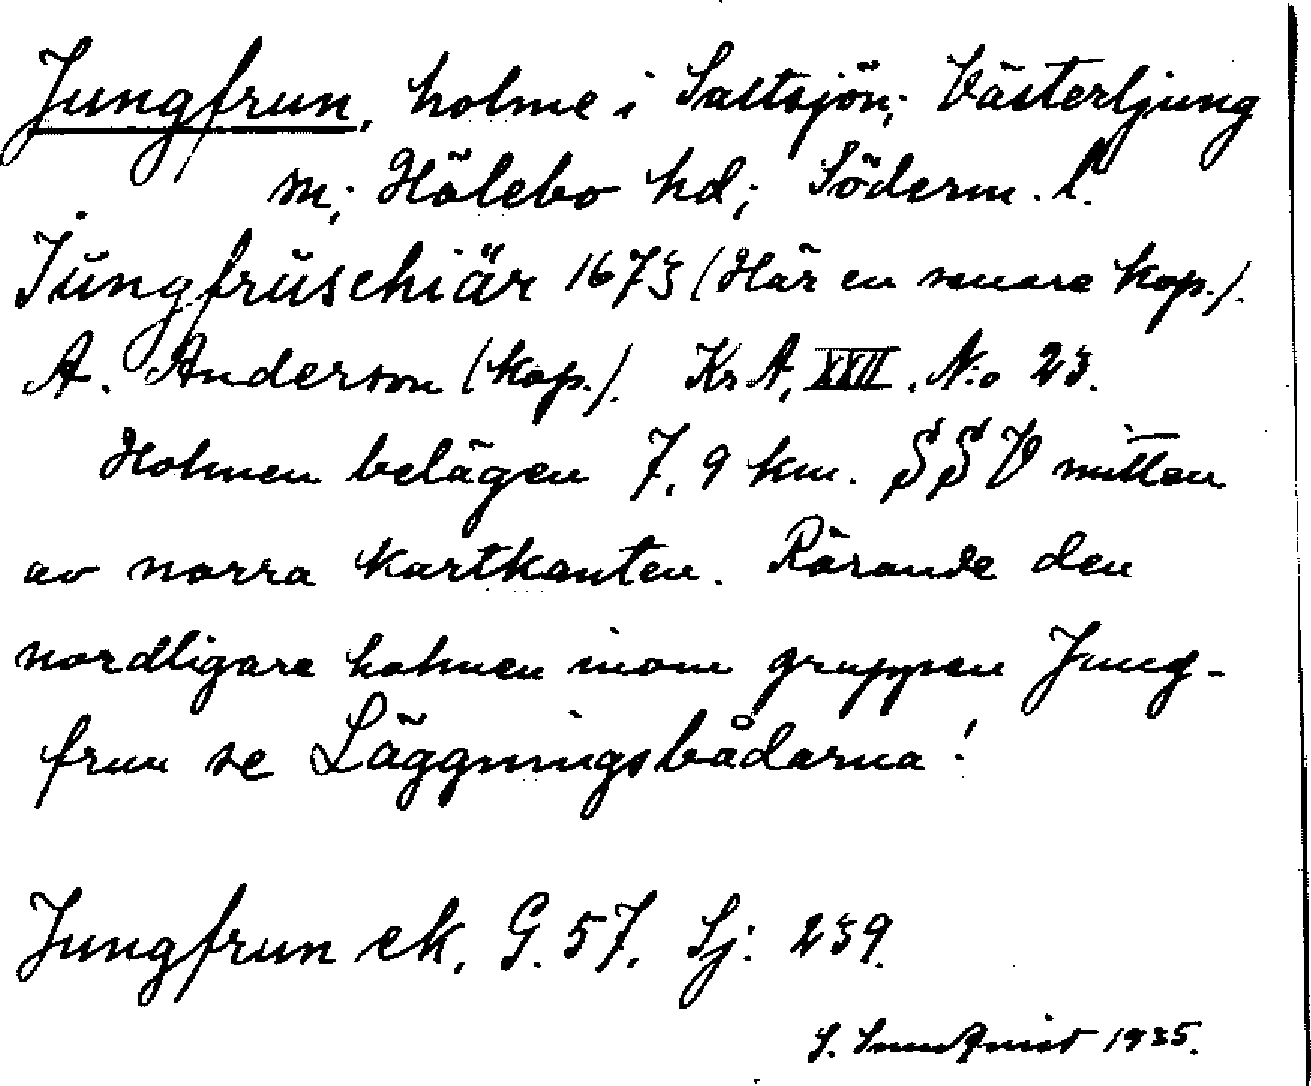 Jungfrun, holme i Saltsjön; Västerljung
sn; Hölebo hd; Söderm. l.
Jŭngfrŭschiär 1673 (Här en senare kop.).
A. Anderson (kop.). Kr A, XXII. N:o 23.
Holmen belägen 7,9 km. SSV mitten
av norra kartkanten. Rörande den
nordligare holmen inom gruppen Jung-
frun se Läggningsbådarna!
Jungfrun ek. G. 57. Sj: 239.
1935.